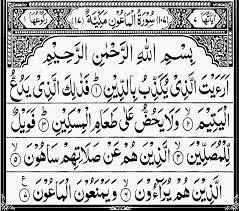 اٰيَاتُهَا ٧ (١٠٧) سُوْرَةُ الْمَاعُوْنِ مَكِّيَّةٌ (١٧) رُكُوْعُهَا ١
بِسْمِ اللّٰهِ الرَّحْمٰنِ الرَّحِيْمِ
اَرَءَيْتَ الَّذِيْ يُكَذِّبُ بِالدِّيْنِ ١ فَذٰلِكَ الَّذِيْ يَدُعُّ
الْيَتِيْمَ ٢ وَلَا يَحُضُّ عَلٰى طَعَامِ الْمِسْكِيْنِ ٣ فَوَيْلٌ
لِّلْمُصَلِّيْنَ ٤ الَّذِيْنَ هُمْ عَنْ صَلَاتِهِمْ سَاهُوْنَ ٥
الَّذِيْنَ هُمْ يُرَآءُوْنَ ٦ وَيَمْنَعُوْنَ الْمَاعُوْنَ ٧